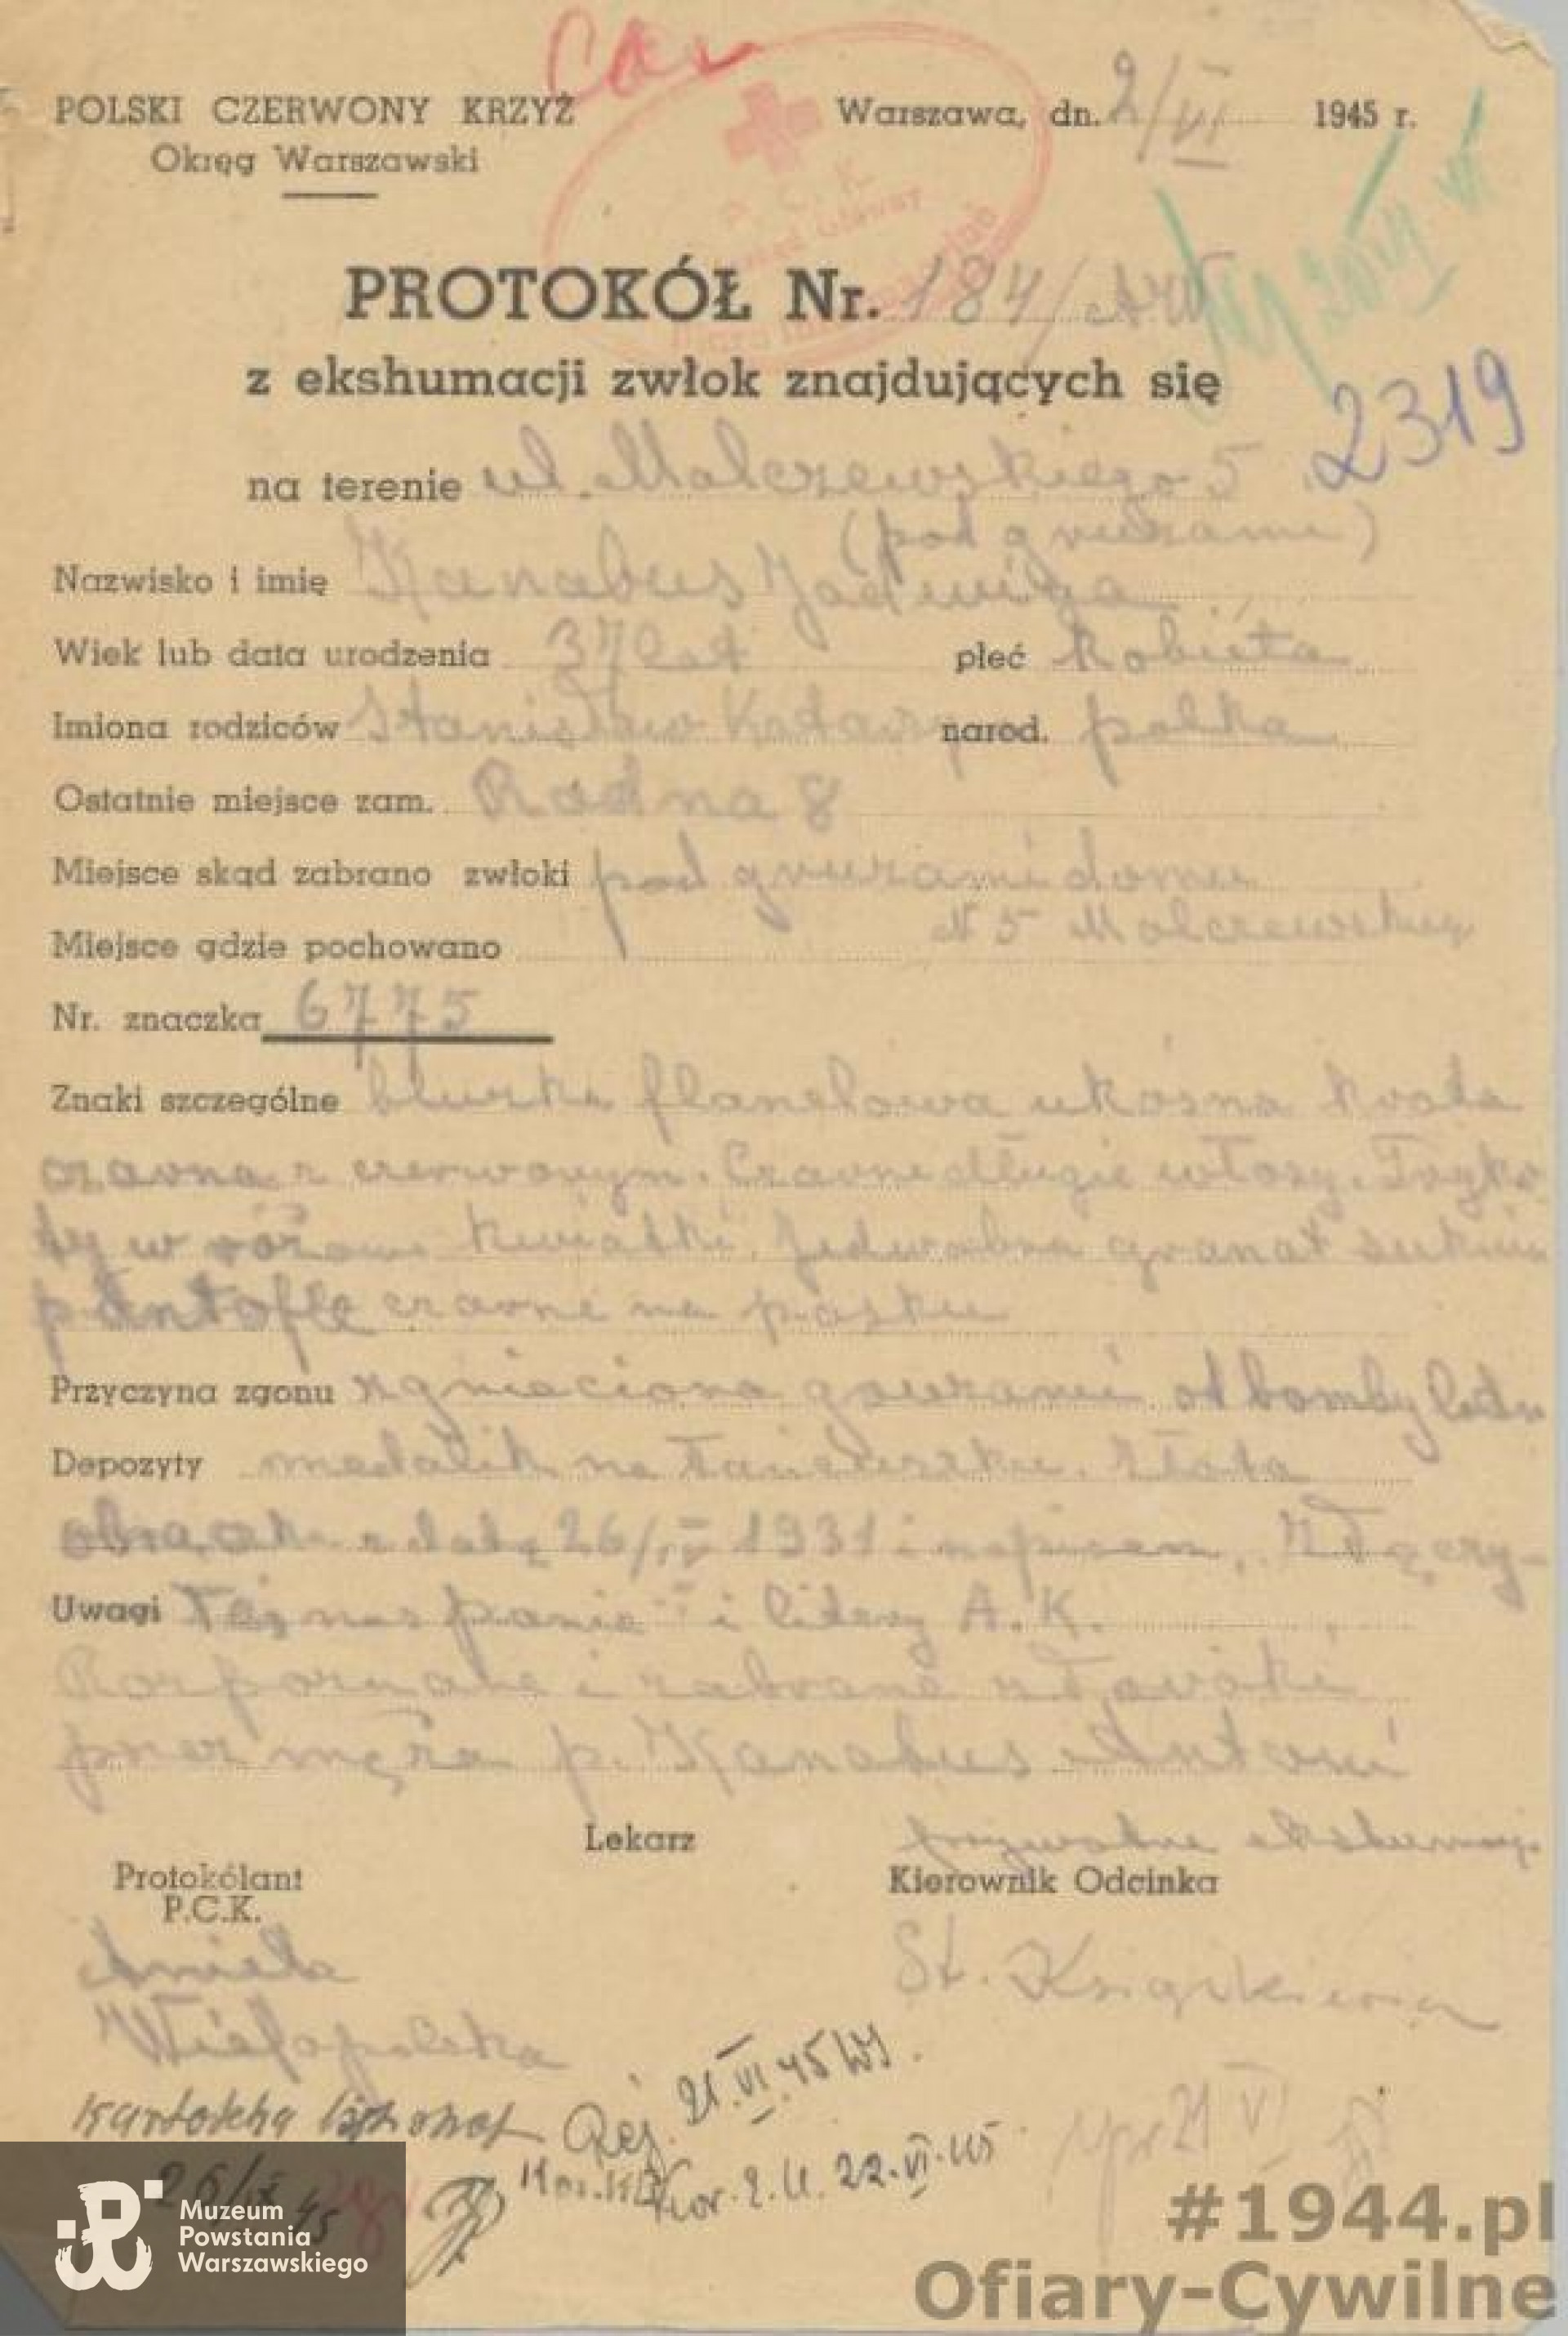 POLSKI CZERWONY KRZYŻ
Okręg Warszawski
Warszawa, dn. 2/VI 1945 r.
PROTOKÓŁ Nr. 184/
z ekshumacji zwłok znajdujących się
2319
na terenie ul. Malczewskiego 5
(pod gruzami)
Nazwisko i imię Kanabus Jadwiga
Wiek lub data urodzenia 37 lat płeć kobieta
Imiona rodziców Stanisław narod. polka
Ostatnie miejsce zam. Radna 8
Miejsce skąd zabrano zwłoki pod gruzami domu
N 5 Malczewskiego
Miejsce gdzie pochowano
Nr. znaczka 6775
Znaki szczegółne bluzka flanelowa ukośna krata
czarna z czerwonym. Czarne długie włosy. Tryko
ty w różowe kwiatki. Jedwabna granat suknia
pantofle czarne na pasku
Przyczyna zgonu zgnieciona gruzami od bomby lotn
Depozyty medalik na łańcuszku. złota
obrączka z datą 26/IV 1931 i napisem, "Złączy-
Uwagi łeś nas panie" i litery A. K.
Rozpoznane i zabrane zwłoki
przez męża p. Kanabus Antoni
prywatne
Lekarz
Protokólant
P.C.K.
Kierownik Odcinka
Aniela
Wielopolska
St.
Kartoteka
Rej. 21.VI.45
22.VI.45
21 VI
Muzeum
Powstania
Warszawskiego
#1944.pl
Ofiary-Cywilne